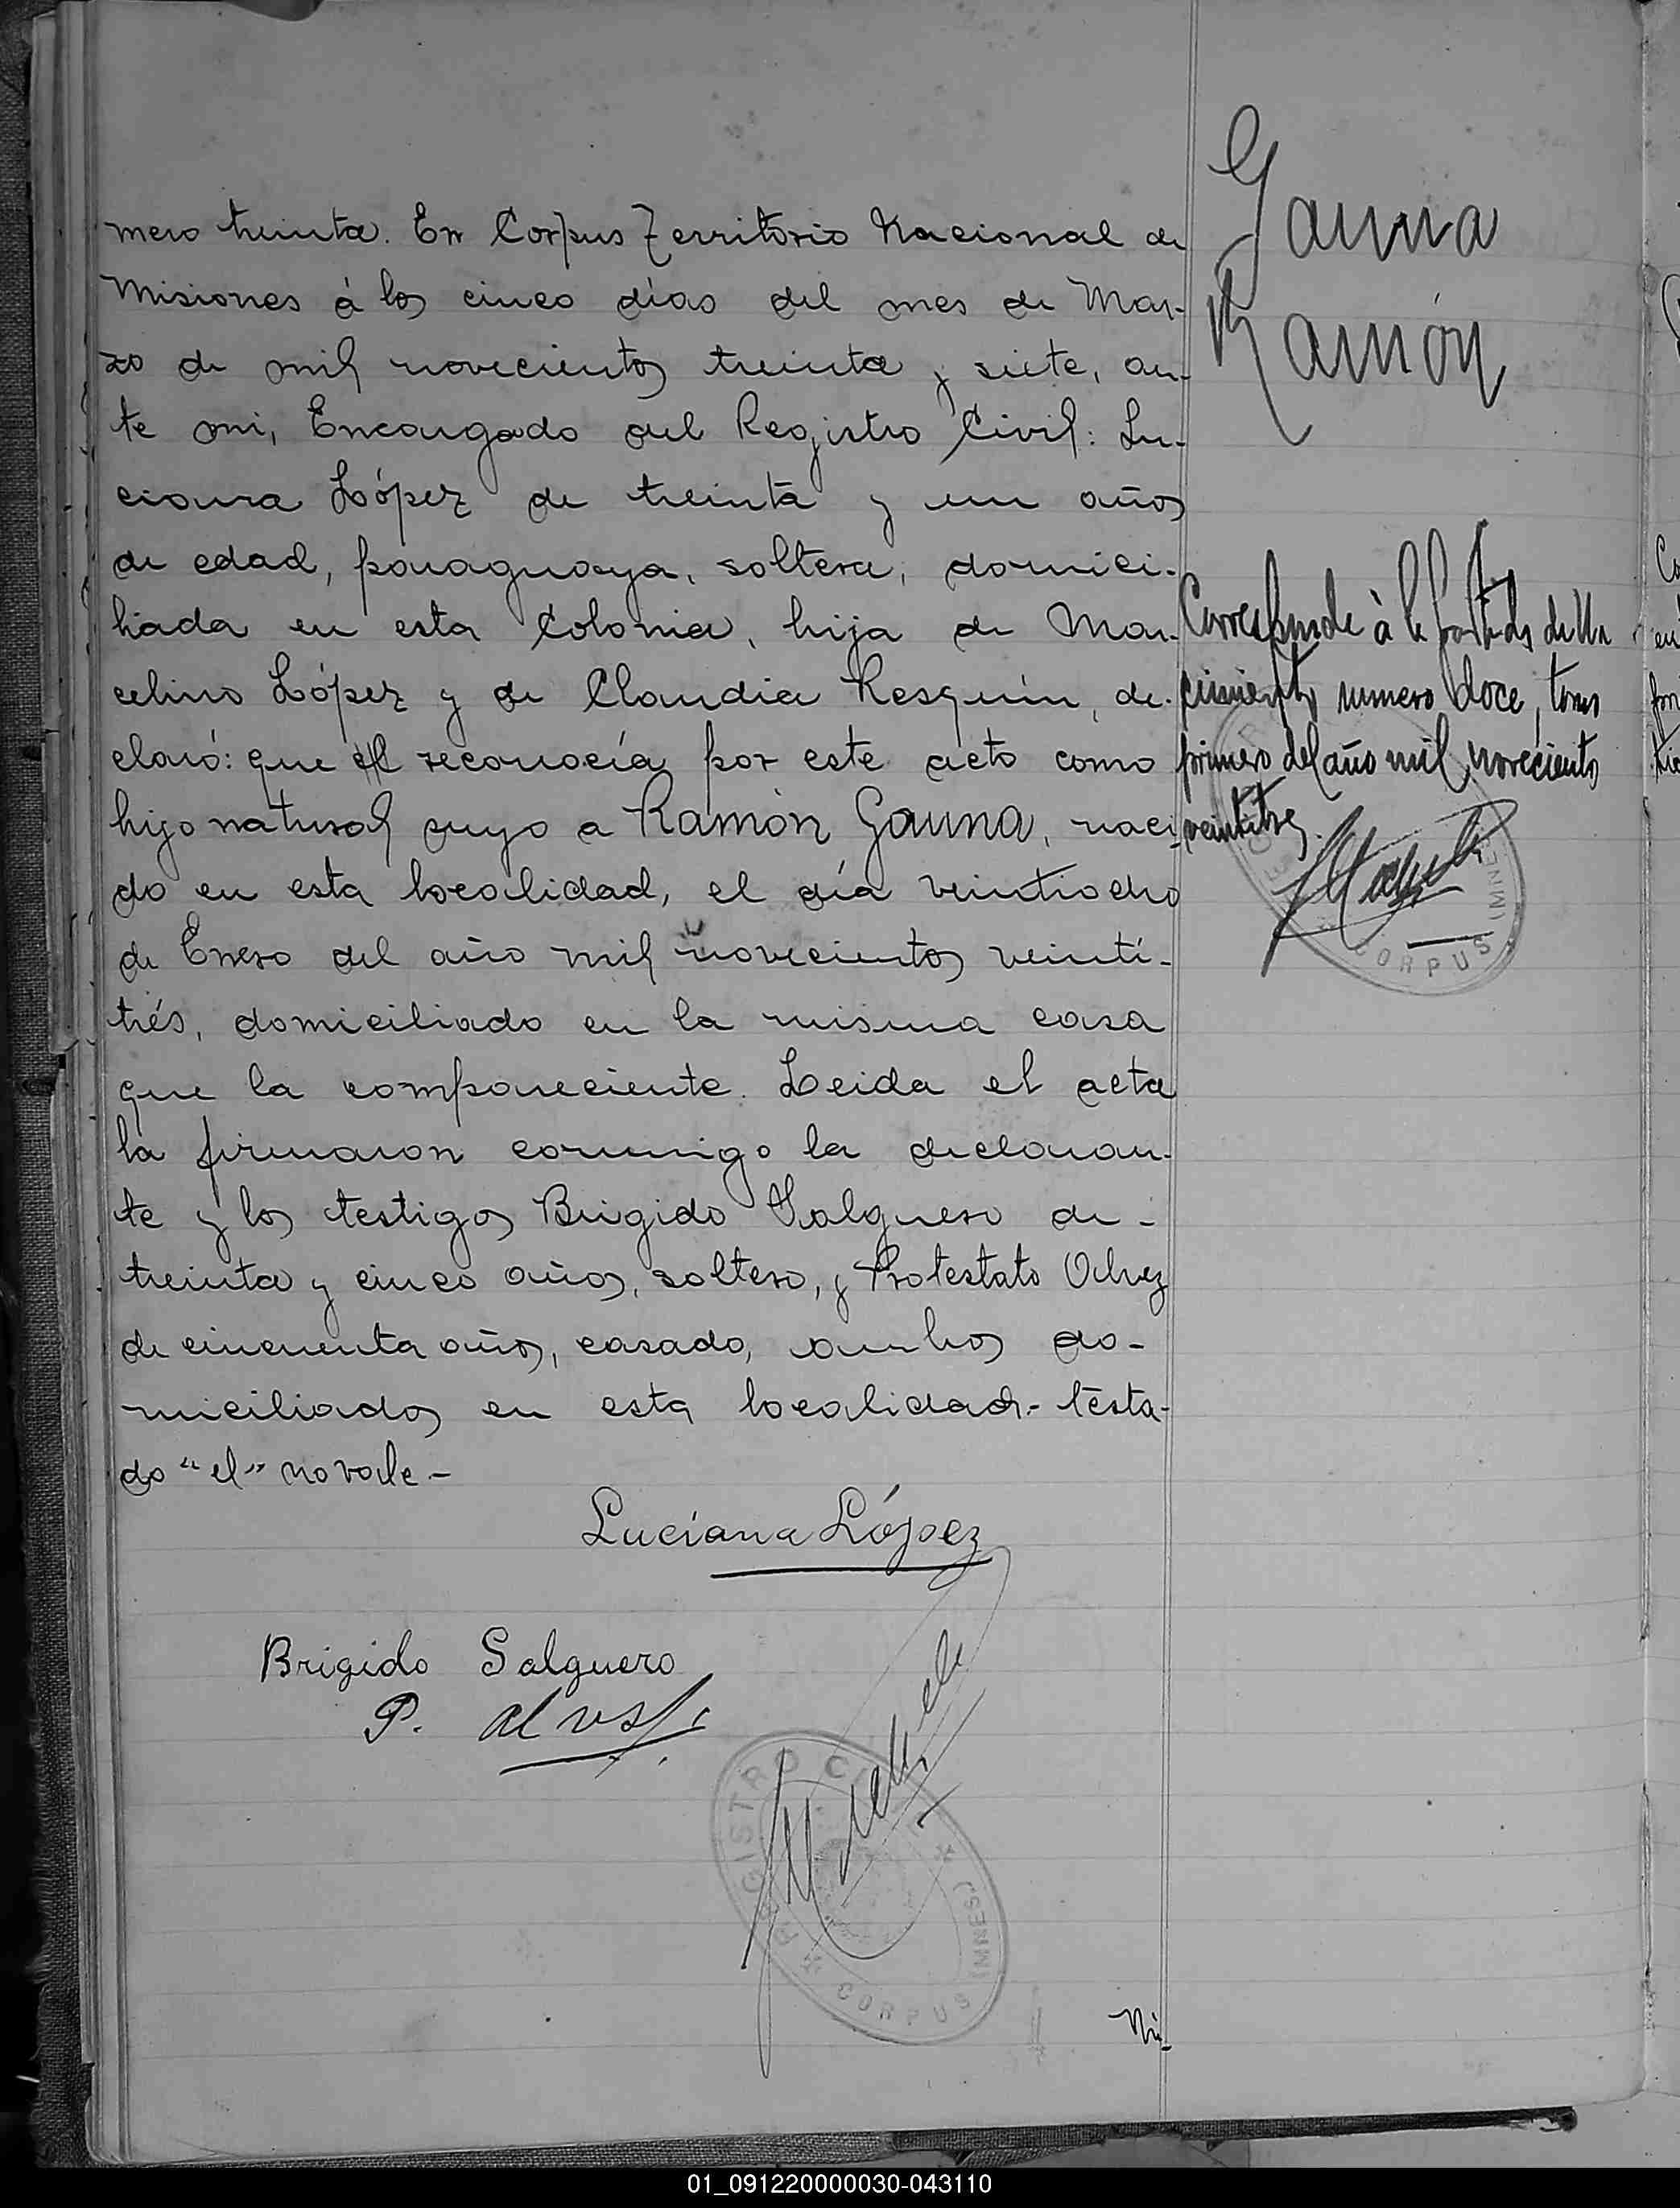 mero treinta. En Corpus Territorio Nacional de
Misiones á los cinco días del mes de Mar-
zo de mil novecientos treinta y siete, an-
te mi, Encargado del Registro Civil: Lu-
ciana López de treinta y un años
de edad, paraguaya, soltera, domici-
liada en esta Colonia, hija de Mar-
celino López y de Claudia Resquín, de-
claró: que el reconocía por este acto como
hijo natural suyo a Ramón Gauna, naci-
do en esta localidad, el día veintiocho
de Enero del año mil novecientos veinti-
trés, domiciliado en la misma casa
que la compareciente. Leida el acta
la firmaron conmigo la declaran-
te y los testigos Brigido Salguero de-
treinta y cinco años, soltero, y Protestato
de cincuenta años, casado, ambos do-
miciliados en esta localidad.- Testa-
do "el" no vale-
Luciana López
Brigido Salguero
P.
REGISTRO CIVIL
CORPUS (MNES)
Nú-
Gauna
Ramón
Corresponde à la partida de Na
cimiento numero doce, tomo
primero del año mil novecientos
veintitres.
CORPUS (MNES)
01_091220000030-043110